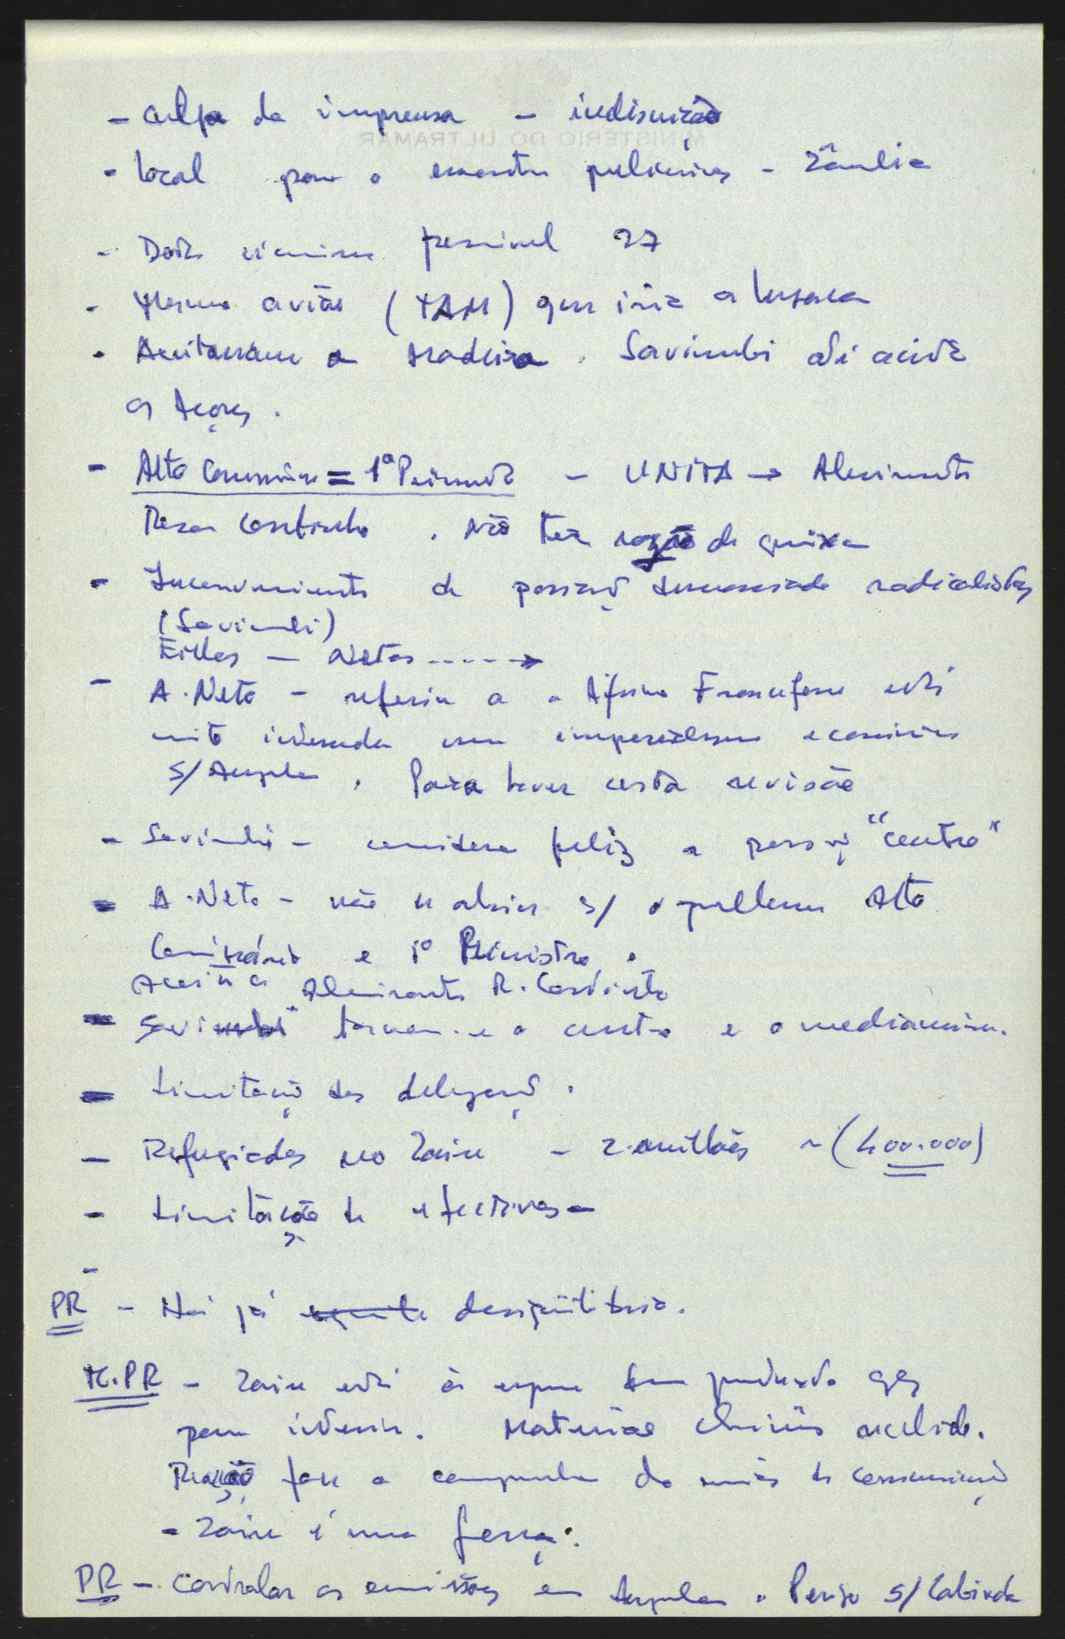 - culpa da imprensa - indiscrição
MINISTÉRIO DO ULTRAMAR
- local para o encontro preliminar - Zâmbia
- Dois possível 27
- Mesmo avião (TAM) que iria a Lusaca
- Aceitavam a Madeira. Savimbi
os Açores.
- Alto Comissário = 1º - UNITA → Almirante
Rosa Coutinho. Não tem razão de queixa
- Inconveniente de radicalistas
(Savimbi)
- Netos ---->
- A. Neto - referiu a África Francófona está
muito interessada num imperialismo económico
s/ Angola. Para haver certa revisão
- Savimbi - considera feliz a posição "centro"
- A. Neto - não se abriu s/ o problema Alto
Comissário e 1º Ministro.
Aceita Almirante R. Coutinho
- Savimbi tornou-se o centro e o medianeiro.
- Limitação das delegações.
- Refugiados no Zaire - 2 milhões ~ (400.000)
- Limitação de efectivos -
-
PR - Há já desiquilíbrio.
M.PR - Zaire está à espera dum pretexto qq
para intervir. Material chinês recebido.
Reacção face a campanha dos meios de comunicação
- Zaire é uma força.
PR - Controlar as emissões em Angola. Perigo s/ Cabinda